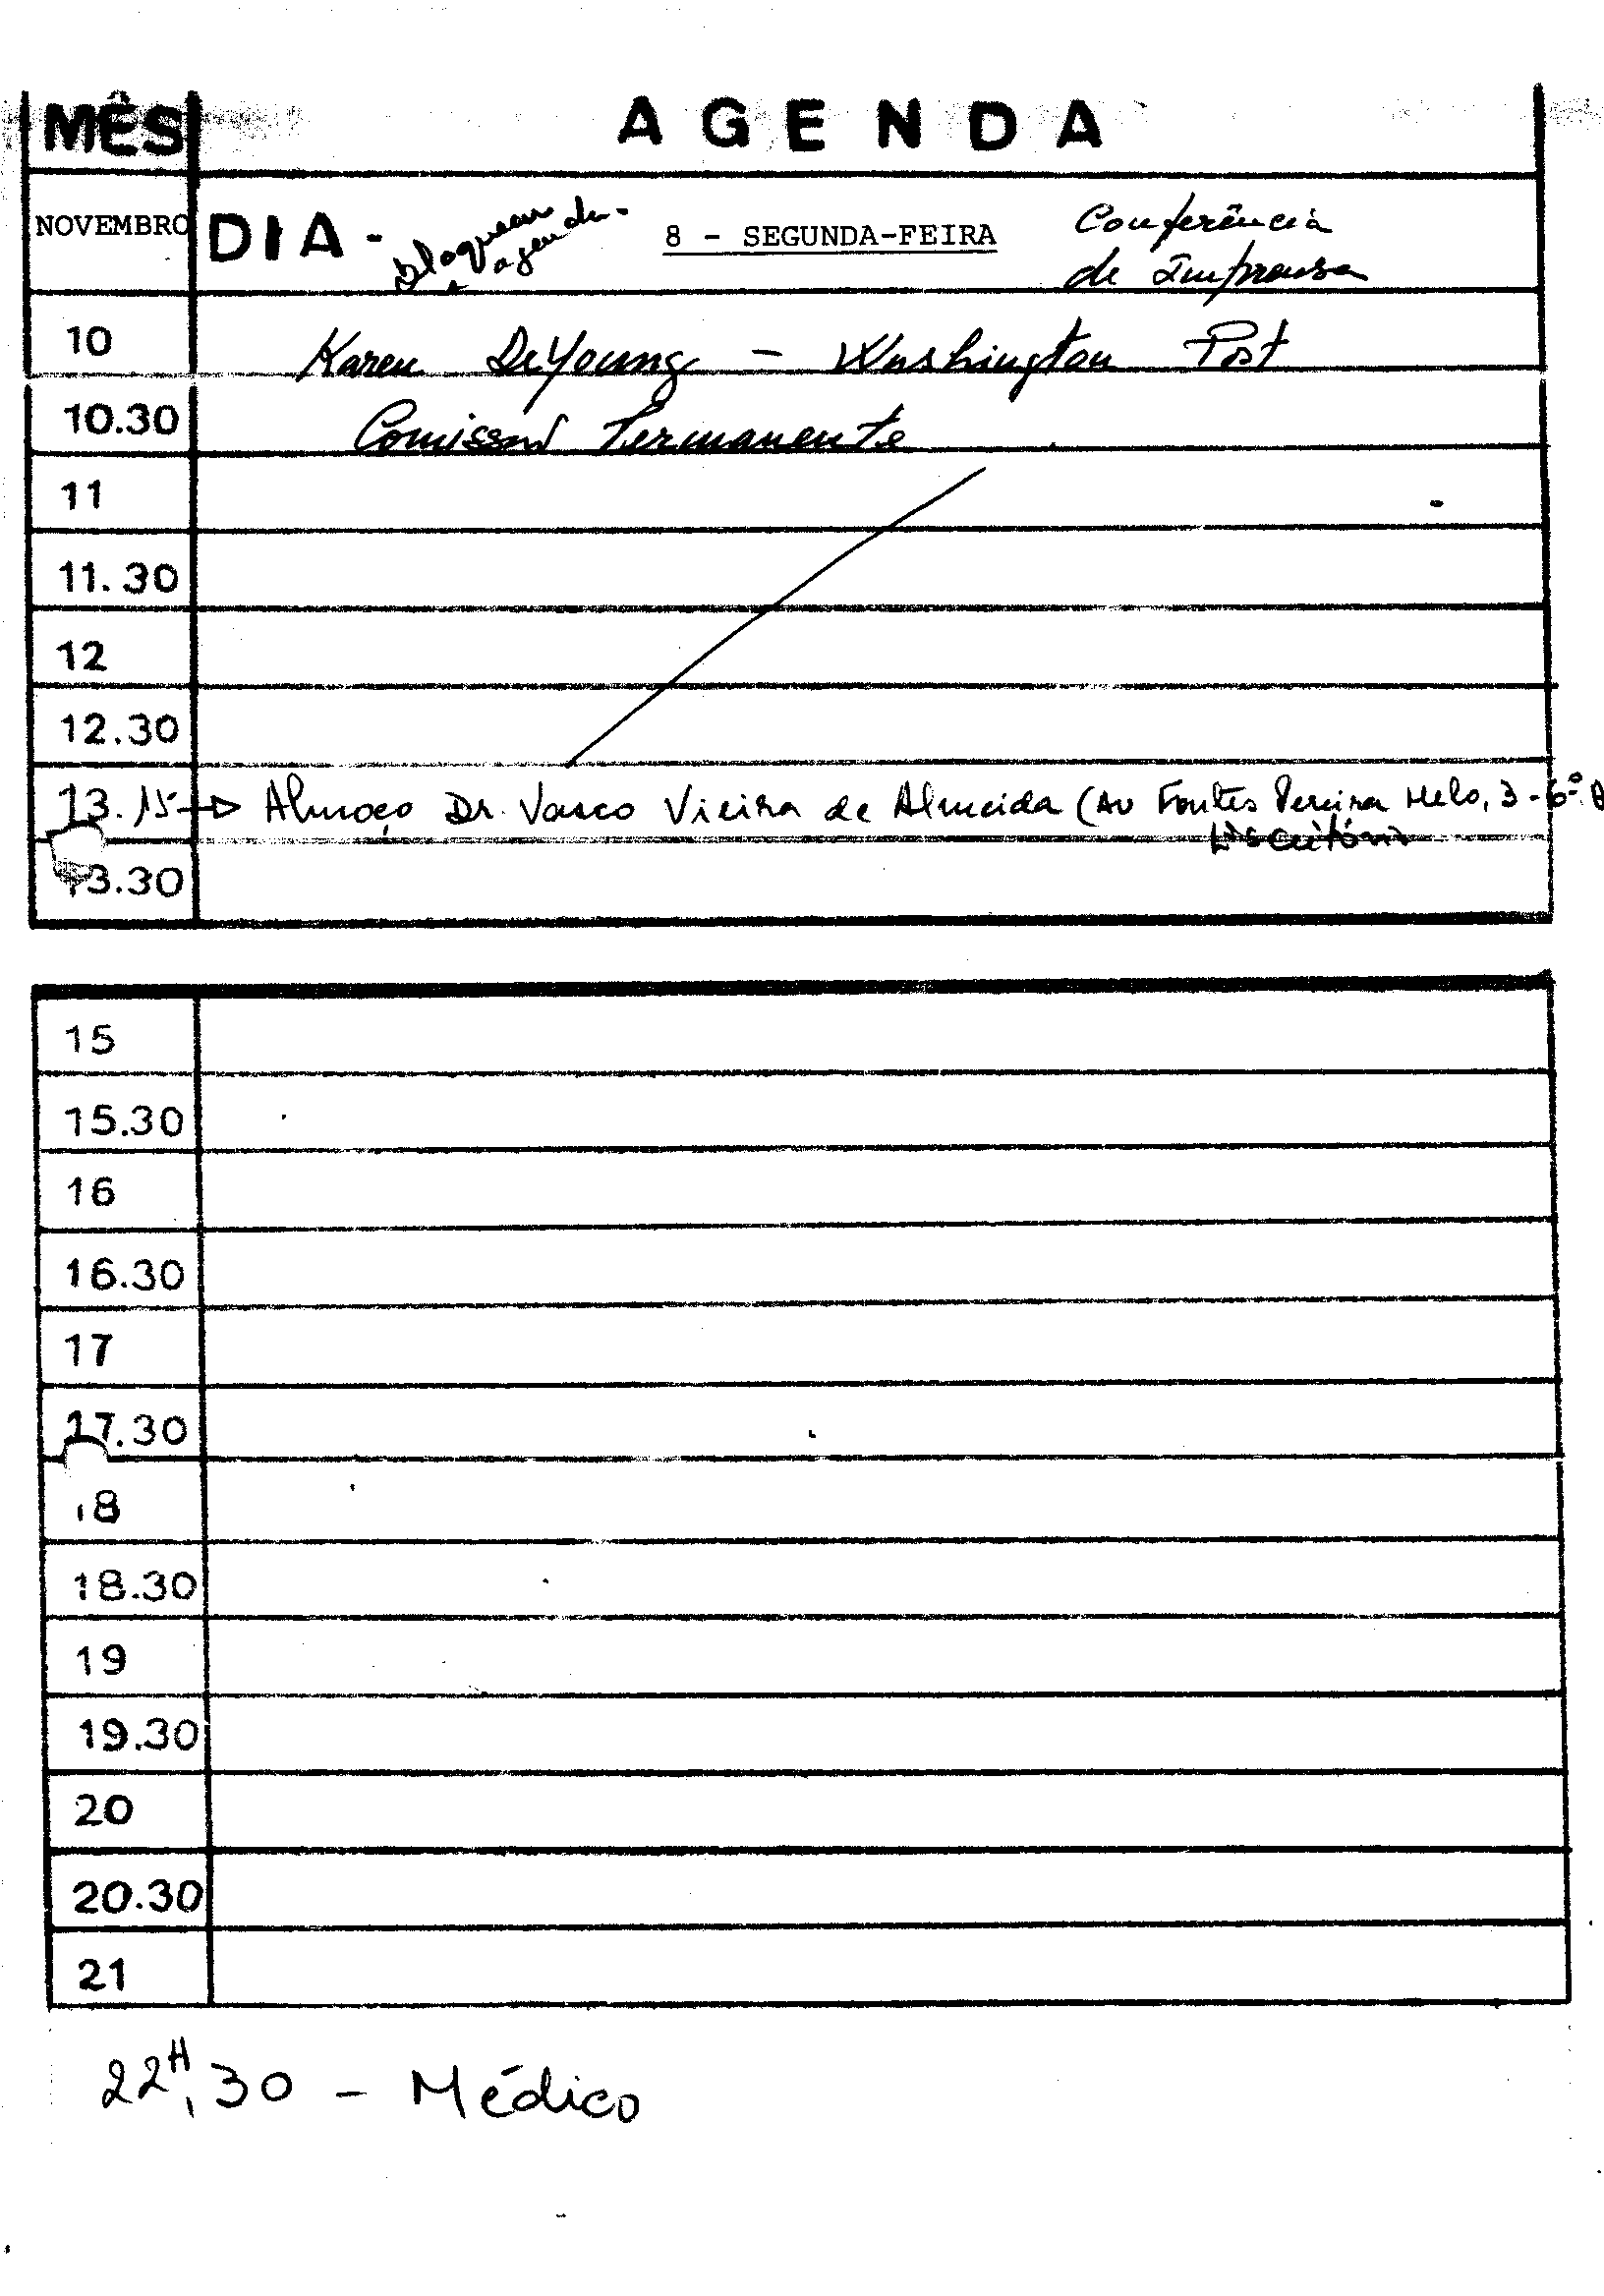 MÊS AGENDA
NOVEMBRO DIA - Bloquear a agenda. 8 - SEGUNDA-FEIRA Conferência
de Imprensa
10 Karen DeYoung - Washington Post
10.30 Comissão Permanente
11
11.30
12
12.30
13.15 → Almoço Dr. Vasco Vieira de Almeida (Av Fontes Pereira Melo, 3 - 6º
Escritório
13.30
15
15.30
16
16.30
17
17.30
18
18.30
19
19.30
20
20.30
21
22H,30 - Médico